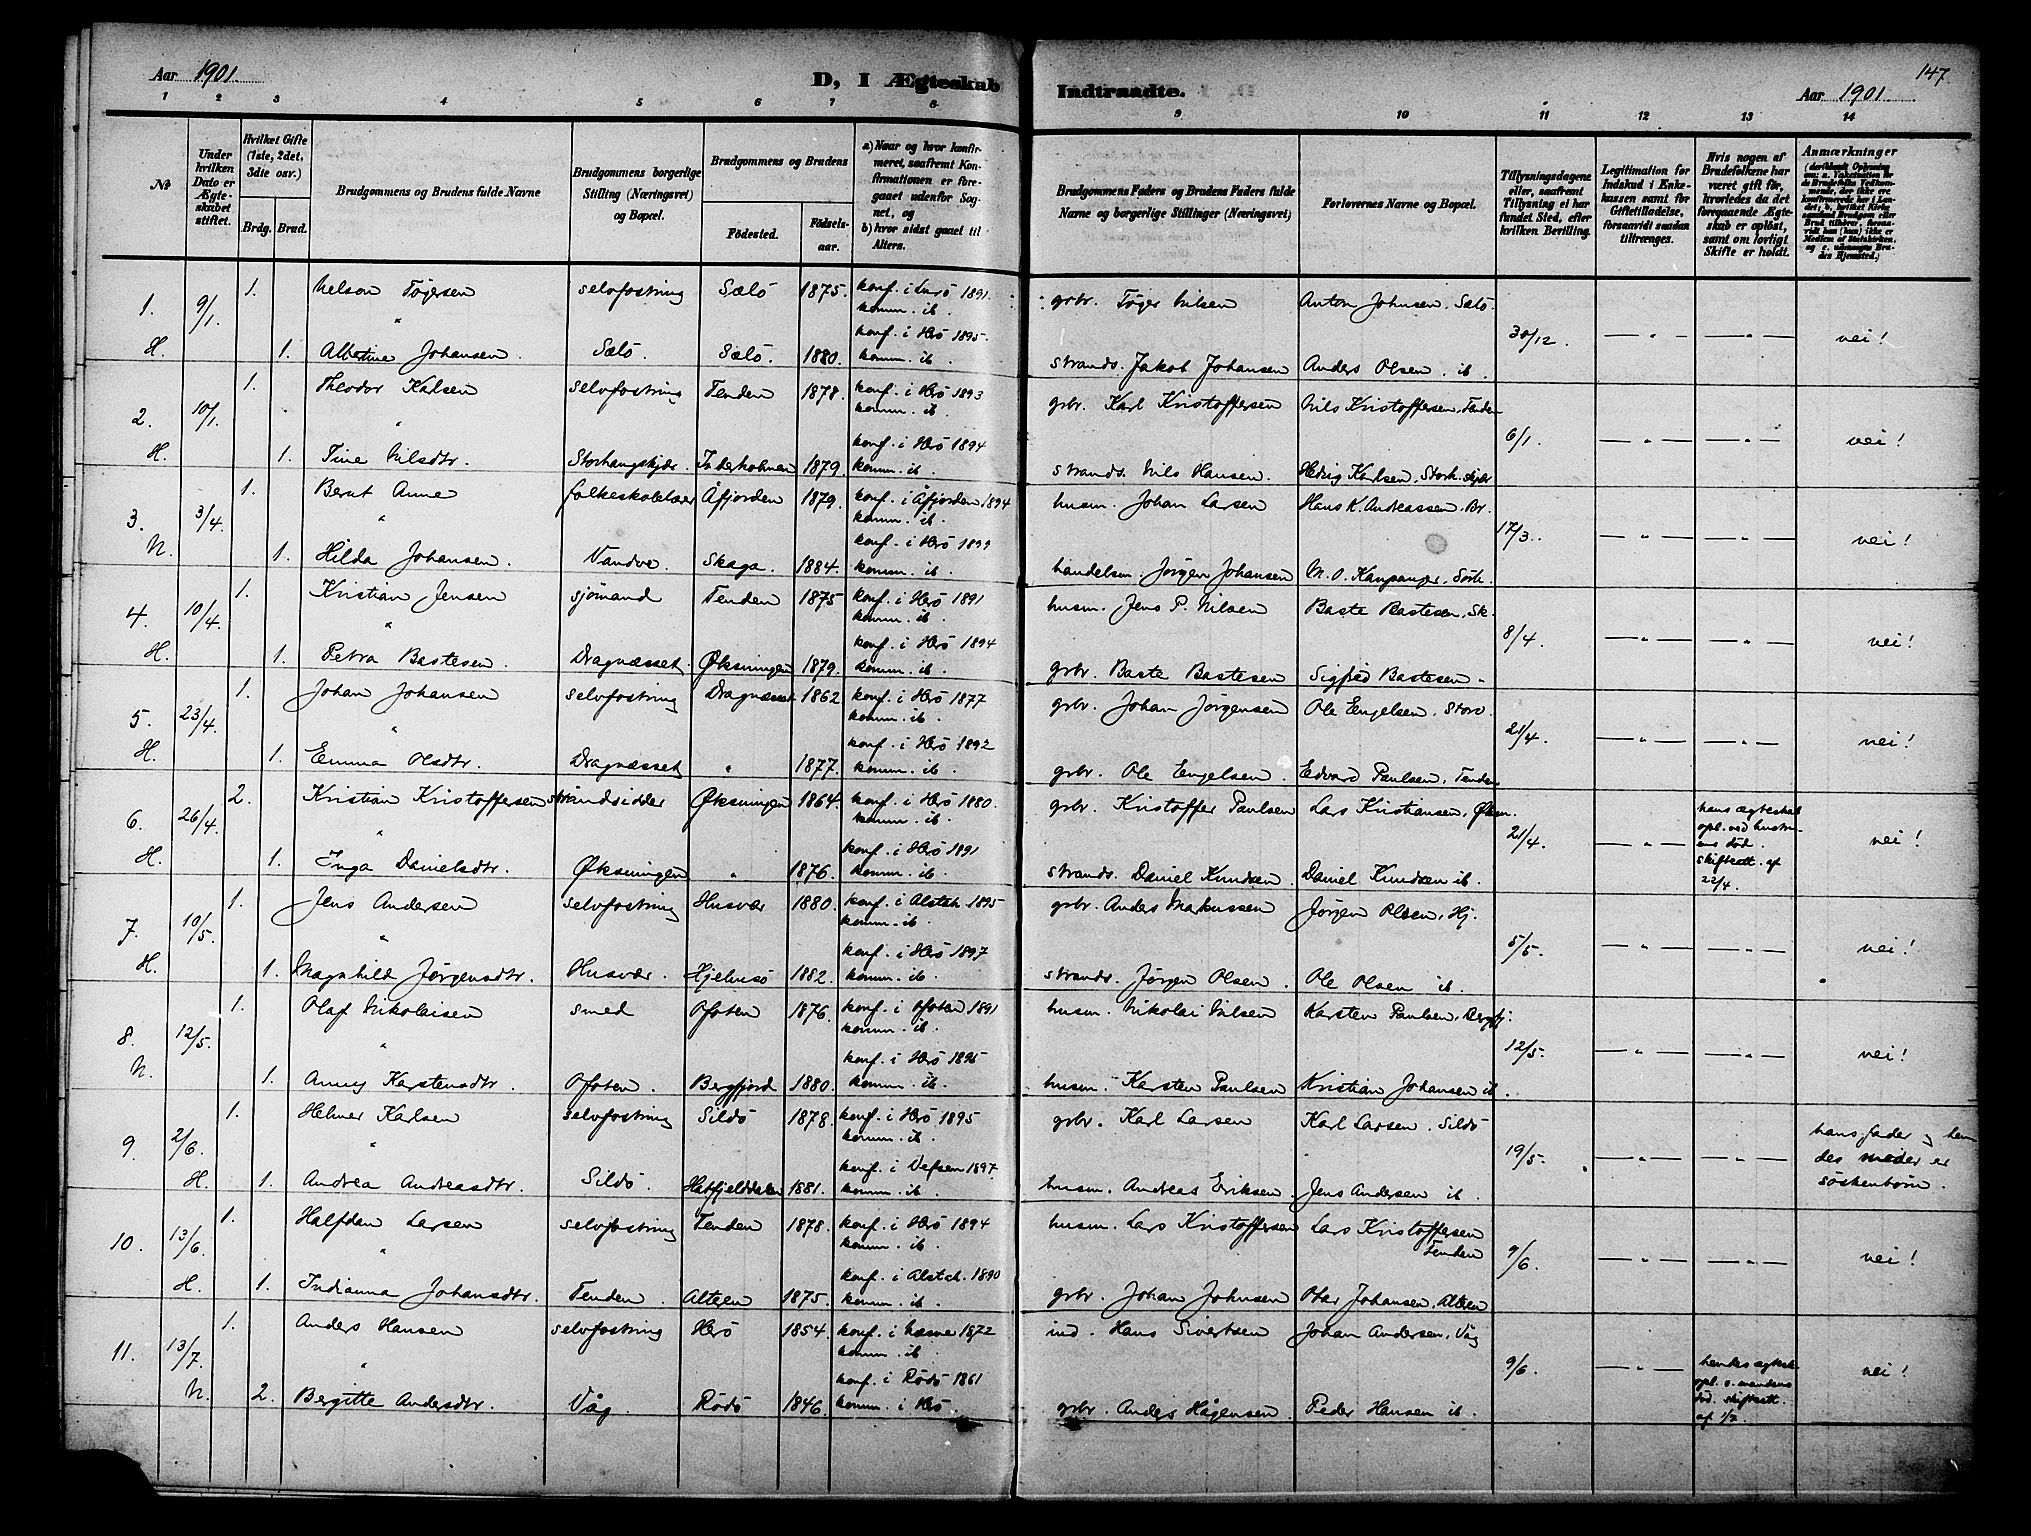 Aar 1901. D, I Ægteskab Indtraadte. Aar 1901. 147
1 2 3 4 5 6 7 8 9 10 11 12 13 14
№
Under hvilken Dato er Ægteskabet stiftet.
Hvilket Gifte (1ste, 2det, 3die osv.)
Brdg. Brud.
Brudgommens og Brudens fulde Navne
Brudgommens borgerlige Stilling (Næringsvei) og Bopæl.
Brudgommens og Brudens
Fødested. Fødselsaar.
a) Naar og hvor konfirmeret, saafremt Konfirmationen er foregaaet udenfor Sognet, og
b) hvor sidst gaaet til Alters.
Brudgommens Faders og Brudens Faders fulde Navne og borgerlige Stillinger (Næringsvei)
Forlovernes Navne og Bopæl.
Tillysningsdagene eller, saafremt Tillysning ei har fundet Sted, efter hvilken Bevilling.
Legitimation for Indskud i Enkekassen samt for Giftetilladelse, forsaavidt saadan tiltrænges.
Hvis nogen af Brudefolkene har været gift før, hvorledes da det foregaaende Ægteskab er opløst, samt om lovligt Skifte er holdt.
Anmærkninger
1. 9/1. 1. Nelson Tøgersen selvfostring Sælö 1875. konf. i Lurö 1891. komm. ib. grbr. Tøger Nilsen Anton Johnsen, Sælö. 30/12. — „ — — „ — nei!
H. 1. Albertine Johansen. Sælö. Sælö. 1880. konf. i Herö 1895. komm. ib. strands. Jakob Johansen Anders Olsen. ib
2. 10/1. 1. Theodor Karlsen selvfostring Tenden 1878. konf. i Herö 1893 komm. ib. grbr. Karl Kristoffersen Nils Kristoffersen, Tenden 6/1. — „ — — „ — nei!
H. 1. Tine Nilsdtr. Storhaugskjær. Inderholmen 1879. konf. i Herö 1894 komm. ib. strands. Nils Hansen. Hedvig Karlsen, Storh.skjær
3. 3/4. 1. Bernt Anne folkeskolelær. Åfjorden 1879. konf. i Åfjorden 1894 komm. ib. husm. Johan Larsen Hans K. Andreassen. Br. 17/3. — „ — — „ — nei!
N. 1. Hilda Johansen. Vandve. Skaga. 1884. konf. i Herö 1899 komm. ib. handelsm. Jørgen Johansen M. O. Kaupanger, Sörh.
4. 10/4. 1. Kristian Jensen sjömand Tenden 1875 konf. i Herö 1891 komm. ib. husm. Jens P. Nilsen Baste Bastesen, Sk. 8/4. — „ — — „ — nei!
H. 1. Petra Bastesen. Dragnæsset. Øksningen 1879. konf. i Herö 1894 komm. ib. grbr. Baste Bastesen Sigfred Bastesen
5. 23/4. 1. Johan Johansen selvfostring Dragnæsset 1862 konf. i Herö 1877 komm. ib. grbr. Johan Jørgensen Ole Engelsen, Storv. 21/4. — „ — — „ — nei!
H. 1. Emma Olsdtr. Dragnæsset „ 1877. konf. i Herö 1892 komm. ib. grbr. Ole Engelsen. Edvard Paulsen, Tenden
6. 26/4. 2. Kristian Kristoffersen strandsidder Øksningen 1864. konf. i Herö 1880. komm. ib. grbr. Kristoffer Paulsen Lars Kristiansen, Øksn. 21/4. — „ — hans ægteskab opl. ved hustruens död. skifteatt. af 22/4. nei!
H. 1. Inga Danielsdtr. Øksningen „ 1876. konf. i Herö 1891 komm. ib. strands. Daniel Knudsen. Daniel Knudsen ib.
7. 10/5. 1. Jens Andersen selvfostring Husvær 1880. konf. i Alstah. 1895 komm. ib. grbr. Anders Markussen Jørgen Olsen, Hj. 5/5. — „ — — „ — nei!
H. 1. Magnhild Jørgensdtr. Husvær. Hjelmsö 1882. konf. i Herö 1897 komm. ib. strands. Jørgen Olsen. Ole Olsen ib.
8. 12/5. 1. Olaf Nikolaisen smed Ofoten 1876. konf. i Ofoten 1891 komm. ib. husm. Nikolai Nilsen Karsten Paulsen, Bergfj. 12/5. — „ — — „ — nei!
N. 1. Anny Karstensdtr. Ofoten. Bergfjord 1880. konf. i Herö 1895 komm. ib. husm. Karsten Paulsen Kristian Johansen ib.
9. 2/6. 1. Helmer Karlsen selvfostring Sildö 1878. konf. i Herö 1895 komm. ib. grbr. Karl Larsen Karl Larsen, Sildö 19/5. — „ — — „ — hans fader og hendes moder er söskenbörn.
H. 1. Andrea Andreasdtr. Sildö. Hatfjelddalen 1881. konf. i Vefsen 1897. komm. ib. husm. Andreas Eriksen. Jens Andersen ib.
10. 13/6. 1. Halfdan Larsen selvfostring Tenden 1878. konf. i Herö 1894 komm. ib. husm. Lars Kristoffersen Lars Kristoffersen Tenden 9/6. — „ — — „ — nei!
H. 1. Indianna Johansdtr. Tenden. Alteren 1875. konf. i Alstah. 1890 komm. ib. grbr. Johan Johnsen Otar Johansen, Alteren
11. 13/7. 1. Anders Hansen selvfostring Herö 1854. konf. i Næsne 1872 komm. ib. ind. Hans Sivertsen Johan Andersen, Våg 9/6. — „ — hendes ægtesk. opl. v. mandens död. skifteatt. af 1/2. nei!
N. 2. Bergitte Andersdtr. Våg. Rödö 1846. konf. i Rödö 1861 komm. i Herö. grbr. Anders Hågensen. Peder Hansen ib.